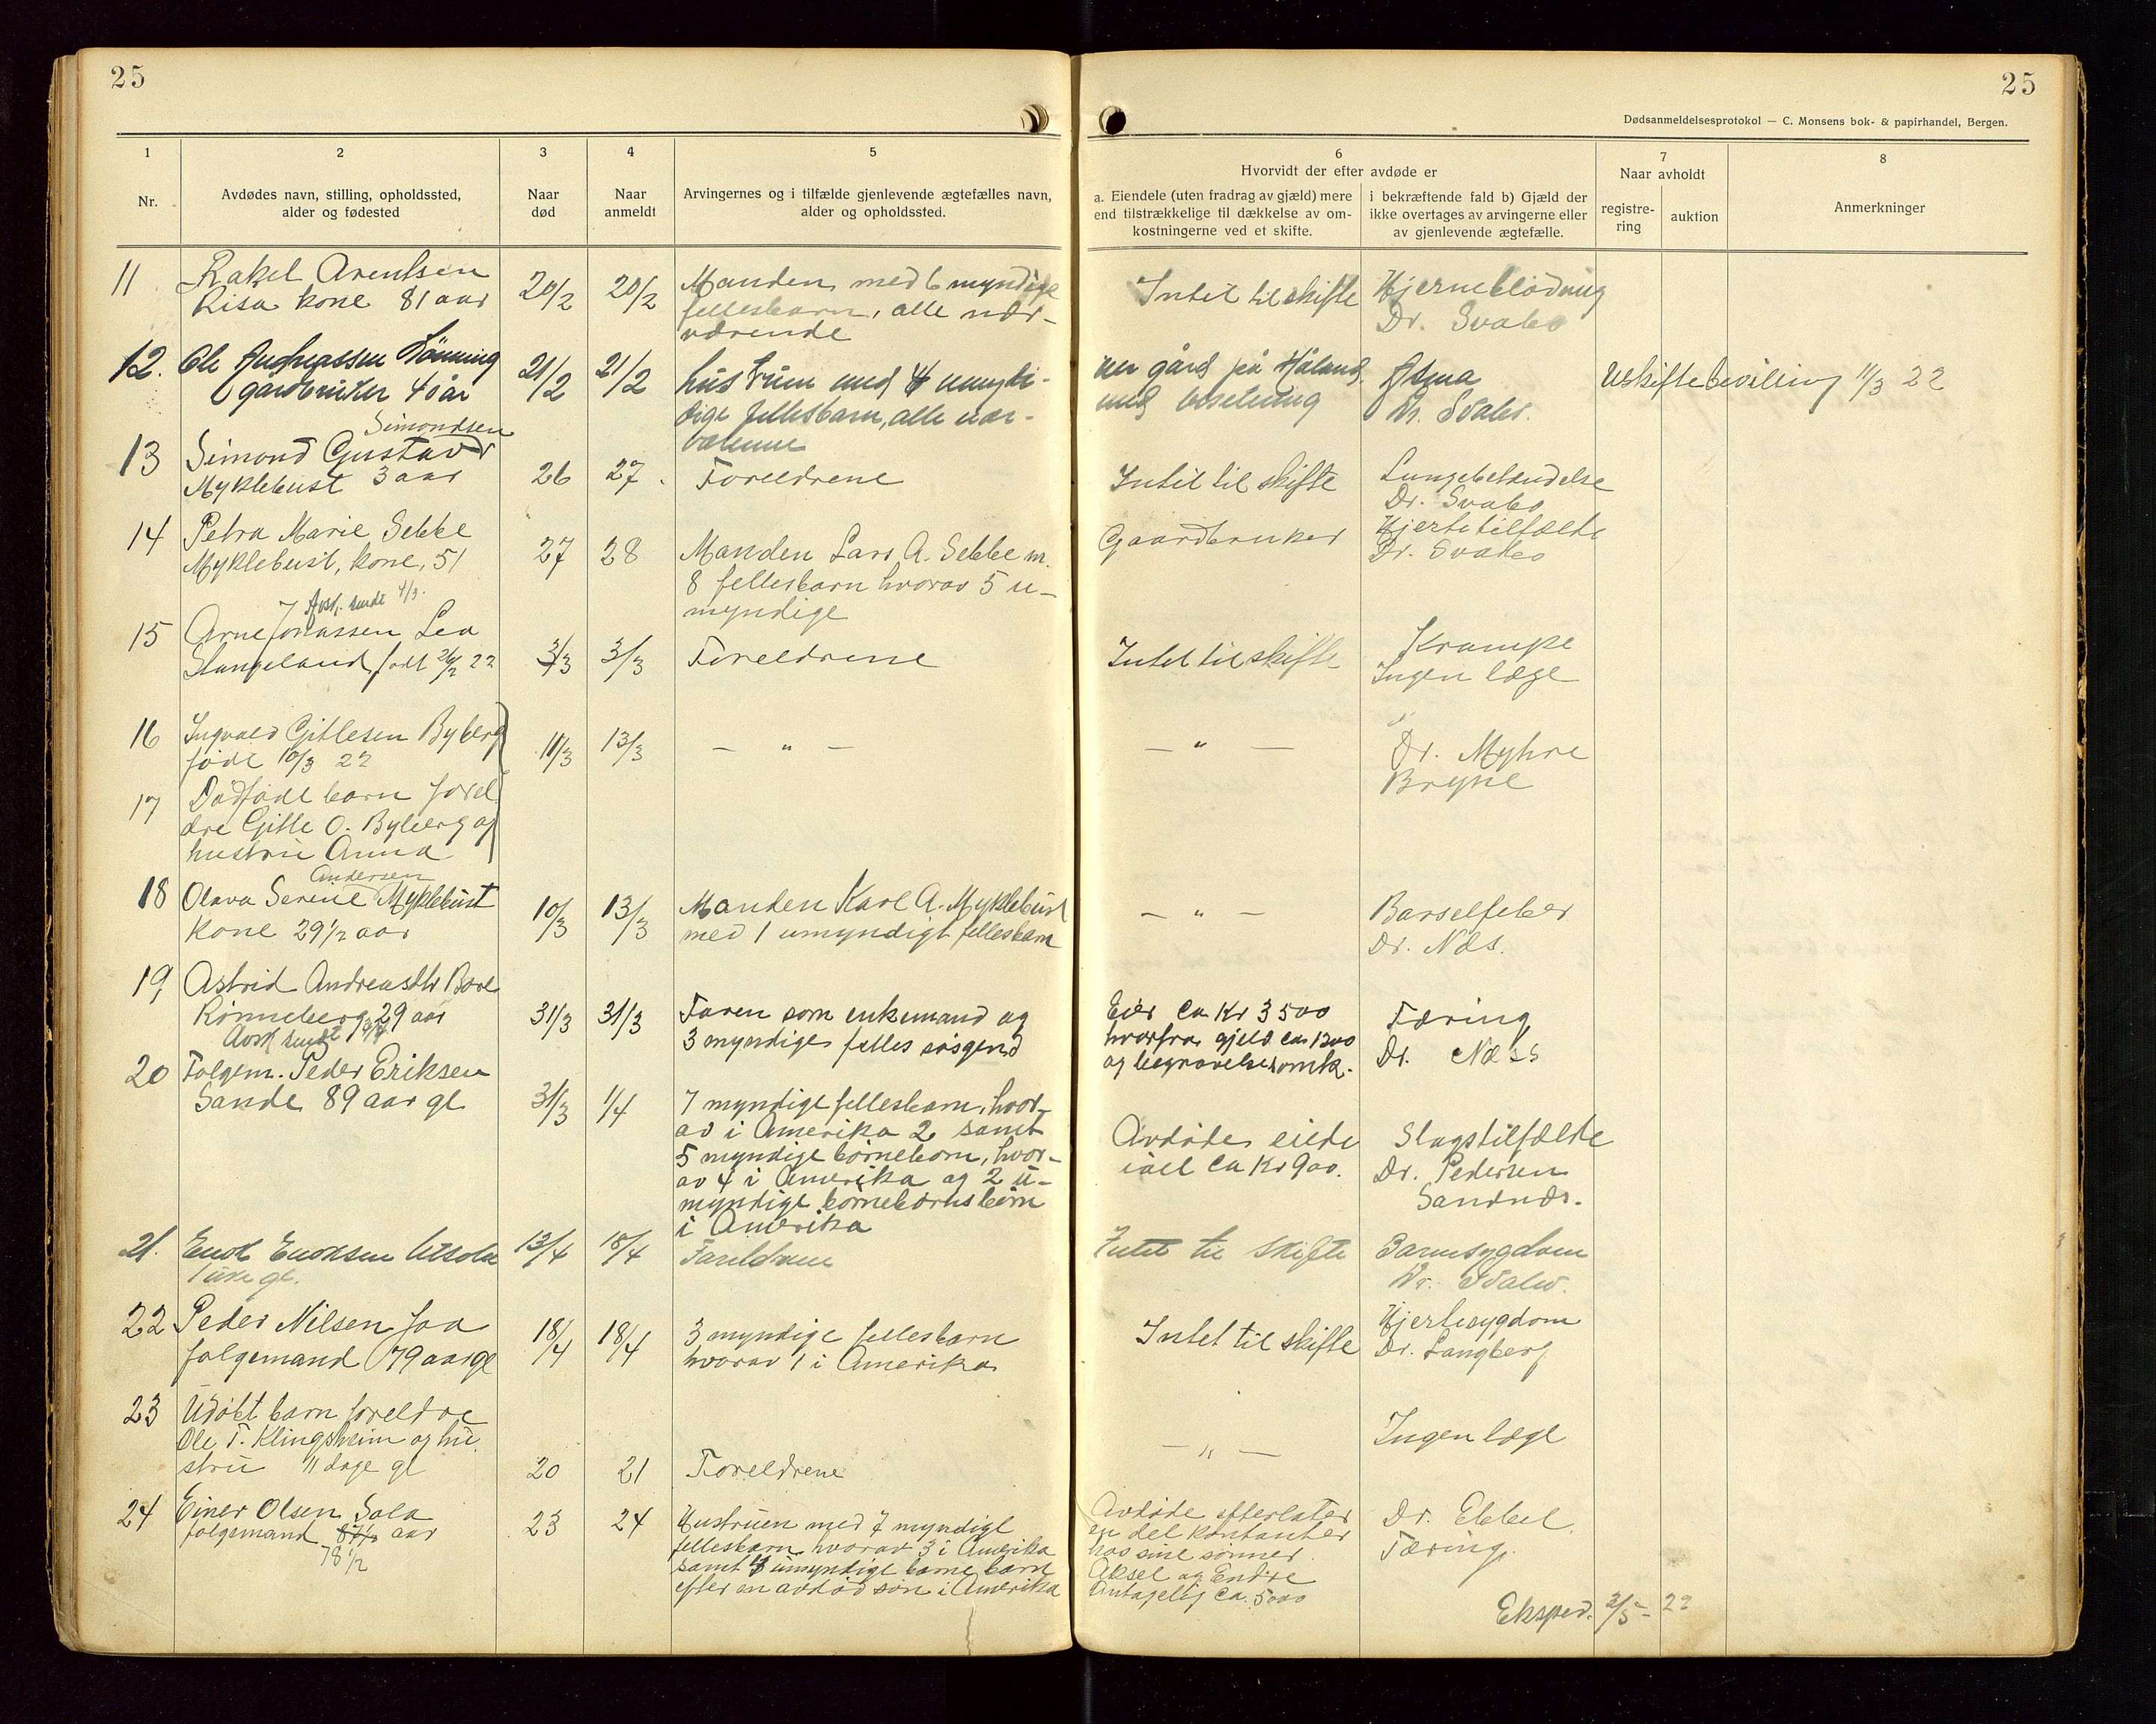 25
25
Dødsanmeldelsesprotokol — C. Monsens bok- & papirhandel, Bergen.
1
2
3
4
5
6
7
8
Nr.
Avdødes navn, stilling, opholdssted,
alder og fødested
Naar
død
Naar
anmeldt
Arvingernes og i tilfælde gjenlevende ægtefælles navn,
alder og opholdssted.
Hvorvidt der efter avdøde er
a. Eiendele (uten fradrag av gjæld) mere
end tilstrækkelige til dækkelse av om-
kostningerne ved et skifte.
i bekræftende fald b) Gjæld der
ikke overtages av arvingerne eller
av gjenlevende ægtefælle.
Naar avholdt
registre-
ring
auktion
Anmerkninger
11
Rakel Arentsen
Risa kone 81 aar
20/2
20/2
Manden med 6 myndige
fellesbarn, alle nær-
værende
Intet til skifte
Hjerneblødning
Dr. Svabo
12.
Ole Lønning
gardbruker 40 år
21/2
21/2
hustrum med 4 umyndi-
dige fellesbarn, alle nær-
en gård på Håland
med besetning
Astma
Dr. Svabo.
Uskiftebevilling 11/3 22
13
Simondsen
Simond Gustav
Myklebust 3 aar
26
27
Foreldrene
Intet til skifte
Lungebetændelse
Dr. Svabo
14
Petra Marie Sebbe
Myklebust, kone, 51
27
28
Manden Lars A. Sebbe m.
8 fellesbarn hvorav 5 u-
myndige
Gaardbruker
Hjertetilfælde
Dr. Svabo
Avsk. sendt 4/3.
15
Arne Jonassen Lea
Stangeland født 26/2 22
3/3
3/3
Foreldrene
Intet til skifte
Krampe
Ingen læge
16
Ingvald Gitlesen Byberg
født 10/3 22
11/3
13/3
— " —
— " —
Dr. Myhre
Bryne
17
Dødfødt barn forel
dre Gitle O. Byberg og
hustru Anna
18
Andersen
Olava Serine Myklebust
kone 29 1/2 aar
10/3
13/3
Manden Karl A. Myklebust
med 1 umyndigt fellesbarn
— " —
Barselfeber
Dr. Næs.
19
Astrid Andreasdtr Bore
Rønneberg 29 aar
Avsk sendt
31/3
31/3
Faren som enkemand og
3 myndige felles søsgend
Eier ca Kr 3500
hvorfra gjeld ca 1300
og begravelsesomk.
Tæring
Dr. Næss
20
Folgem. Peder Eriksen
Sande 89 aar gl
31/3
1/4
7 myndige fellesbarn, hvor-
av i Amerika 2 samt
5 myndige børneborn, hvor-
av 4 i Amerika og 2 u-
myndige børnebørnsbørn
i Amerika
Avdøde eiede
ialt ca Kr 900.
Slagstilfælde
Dr. Pedersen
Sandnæs.
21.
Enok Enoksen Utsola
1 uke gl.
13/4
18/4
Foreldrene
Intet til skifte
Barnsygdom
Dr. Svabo.
22
Peder Nilsen Joa
folgemand 79 aar gl
18/4
18/4
3 myndige fellesbarn
hvorav 1 i Amerika
Intet til skifte
Hjertesygdom
Dr. Langberg
23
Udøbt barn foreldre
Ole T. Klingsheim og hu
stru 11 dage gl
20
21
Foreldrene
— " —
Ingen læge
24
Einer Olsen Sola
folgemand 87 1/2 aar
78 1/2
23
24
Hustruen med 7 myndige
fellesbarn hvorav 3 i Amerika
samt 4 umyndige barnebarn
efter en avdød søn i Amerika
Avdøde efterlater
en del kontanter
hos sine sønner
Aksel og Endre
Antagelig ca. 5000
Dr. Ebbel.
Tæring.
Eksped. 2/5 - 22